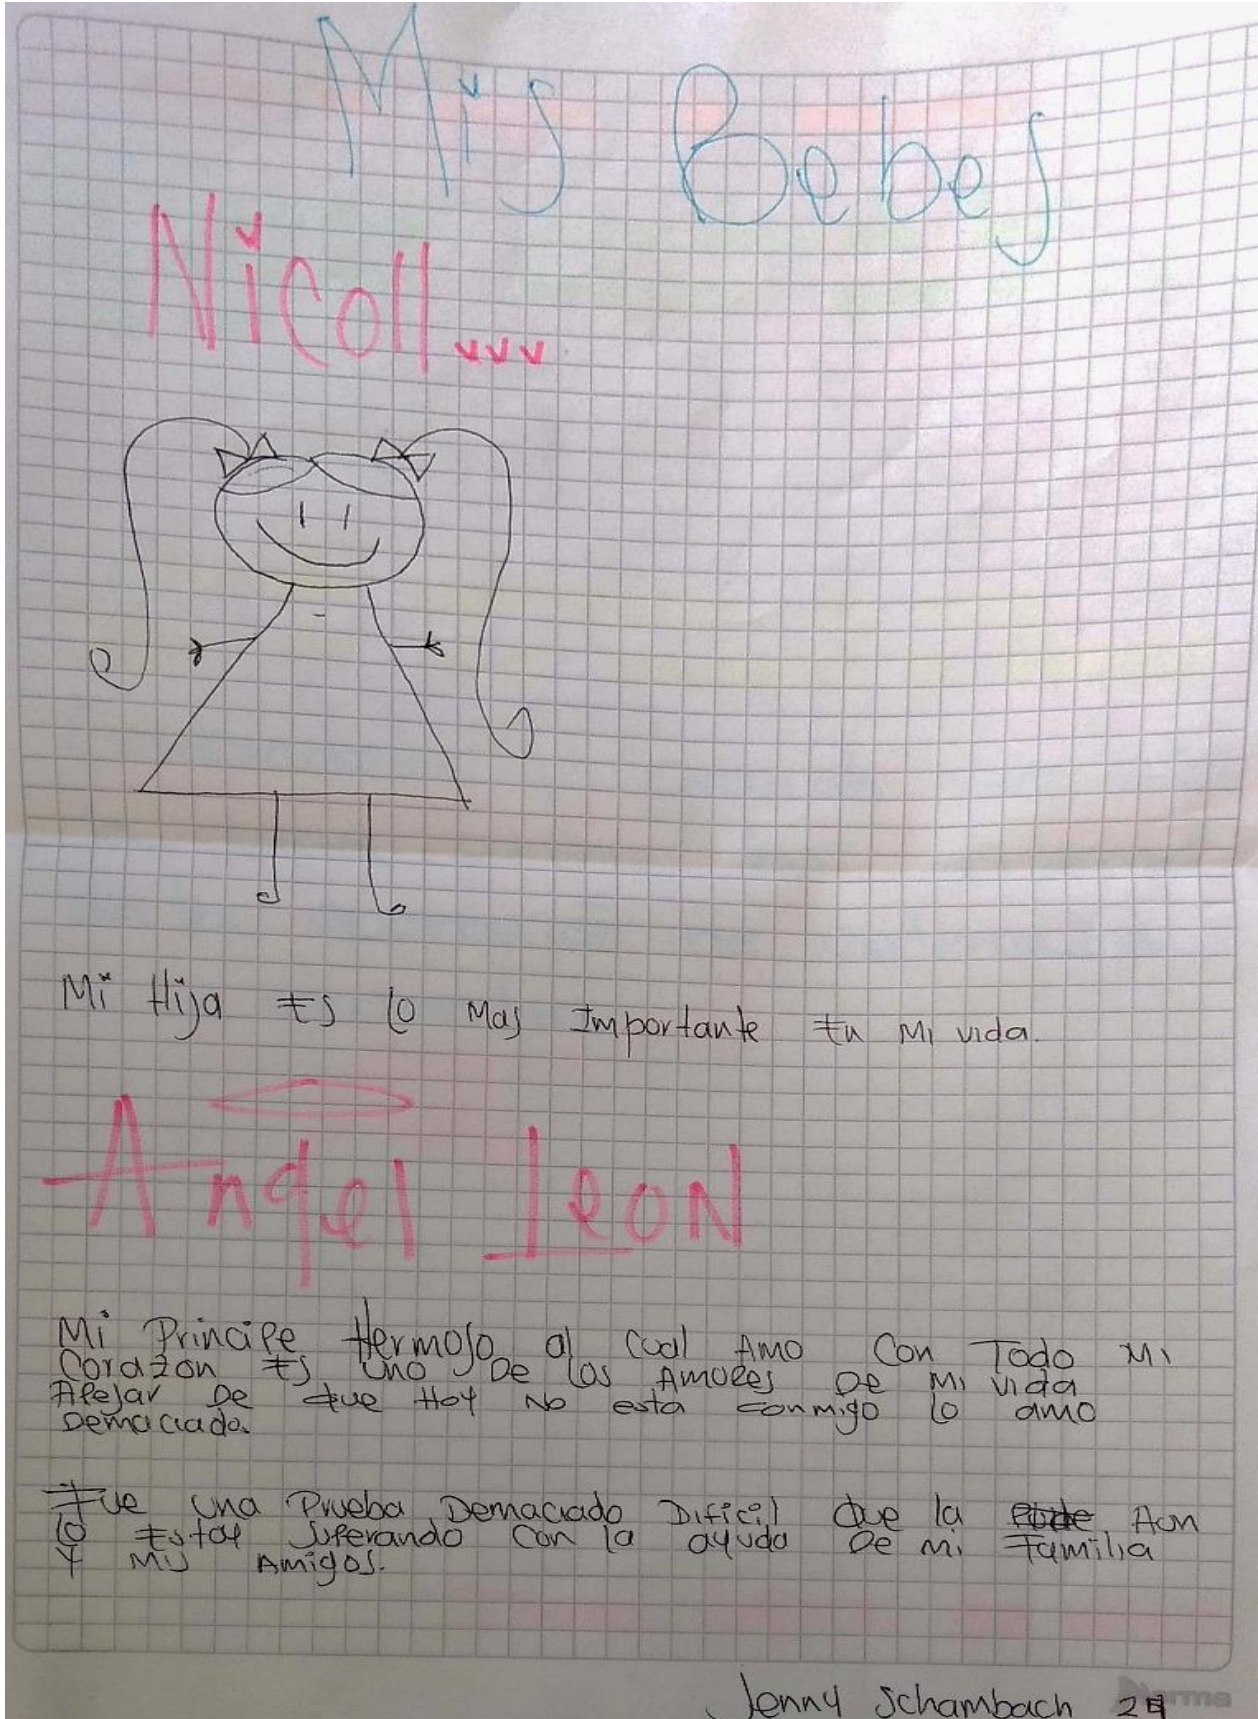 Mis Bebes
Nicoll...
Mi Hija Es lo Mas Importante En Mi vida.
Angel Leon
Mi Principe Hermoso al cual Amo Con Todo Mi
Corazon Es Uno De los Amores De Mi vida
Apesar De Que Hoy No esta conmigo lo amo
Demaciado.
Fue una Prueba Demaciado Dificil Que la Aun
lo Estoy Superando Con la ayuda De mi Familia
Y Mis Amigos.
Jenny Schambach
Norma